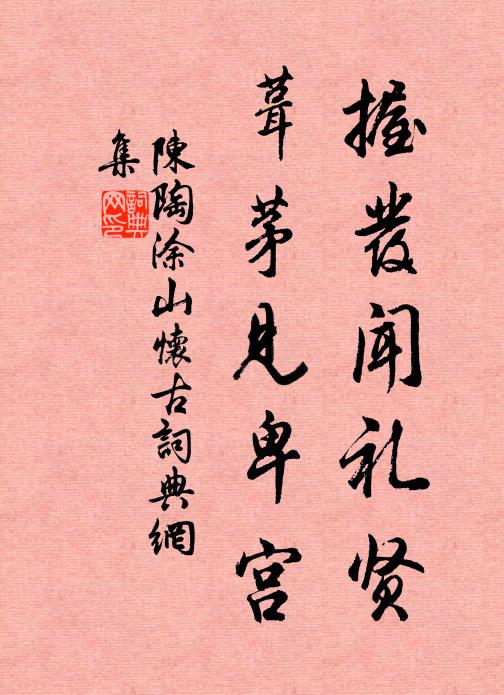 握发闻礼贤
葺茅见卑宫
陳陶涂山懷古詞典網
集
詞典
网印